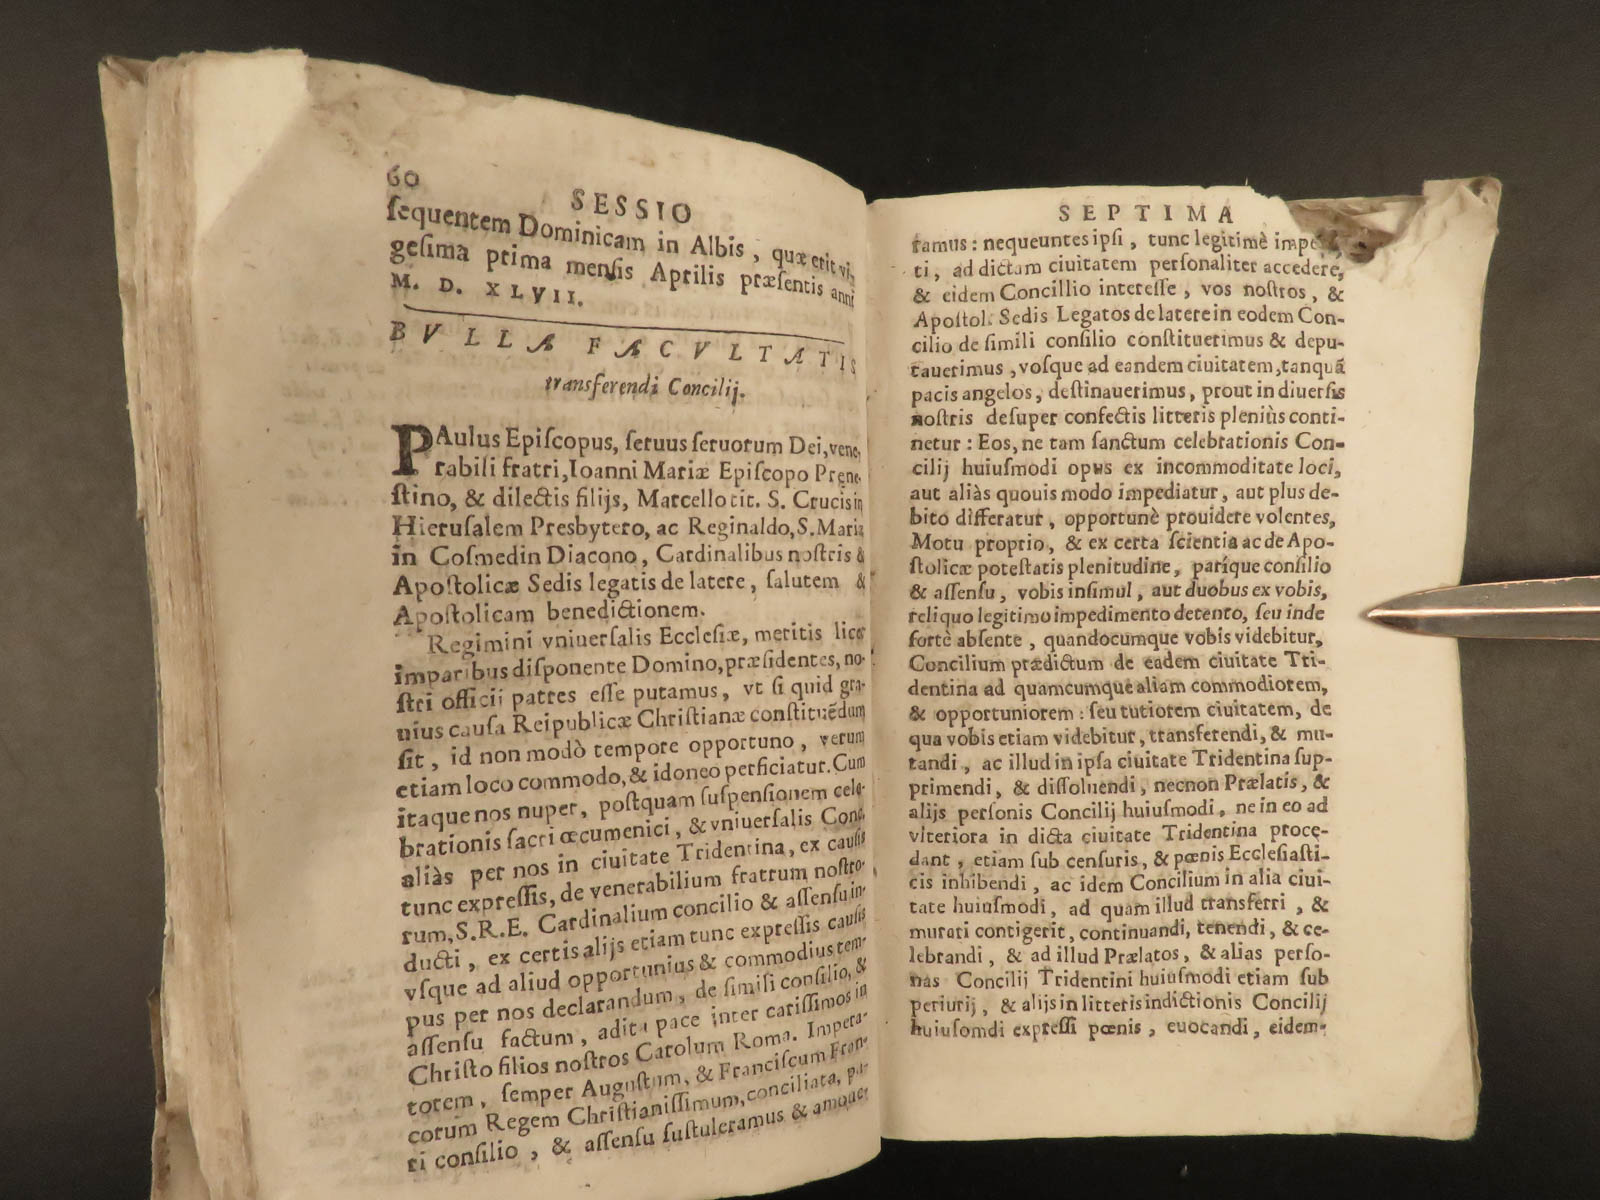 60 SESSIO
ſequentem Dominicam in Albis, quæ erit vi-
geſima prima menſis Aprilis præſentis anni
M. D. XLVII.
BVLLA FACVLTATIS
transferendi Concilij.
PAulus Epiſcopus, ſeruus ſeruorum Dei, vene-
rabili fratri, Ioanni Mariæ Epiſcopo Prene-
ſtino, & dilectis filijs, Marcello tit. S. Crucis in
Hieruſalem Presbytero, ac Reginaldo, S. Mariæ
in Coſmedin Diacono, Cardinalibus noſtris &
Apoſtolicæ Sedis legatis de latere, ſalutem &
Apoſtolicam benedictionem.
Regimini vniuerſalis Eccleſiæ, meritis licet
imparibus diſponente Domino, præſidentes, no-
ſtri officij partes eſſe putamus, vt ſi quid gra-
uius cauſa Reipublicæ Chriſtianæ conſtituēdum
ſit, id non modò tempore opportuno, verum
etiam loco commodo, & idoneo perficiatur. Cum
itaque nos nuper, poſtquam ſuſpenſionem cele-
brationis ſacri œcumenici, & vniuerſalis Conc.
aliàs per nos in ciuitate Tridentina, ex cauſis
tunc expreſſis, de venerabilium fratrum noſtro-
rum, S.R.E. Cardinalium concilio & aſſenſu in-
ducti, ex certis alijs etiam tunc expreſſis cauſis
vſque ad aliud opportunius & commodius tem-
pus per nos declarandum, de ſimili conſilio, &
aſſenſu factum, adita pace inter cariſſimos in
Chriſto filios noſtros Carolum Roma. Impera-
torem, ſemper Auguſtum, & Franciſcum Fran-
corum Regem Chriſtianiſſimum, conciliata, pa-
ri conſilio, & aſſenſu ſuſtuleramus & amoue-
SEPTIMA
ramus: nequeuntes ipſi, tunc legitimè impe
ti, ad dictam ciuitatem perſonaliter accedere,
& eidem Concillio intereſſe, vos noſtros, &
Apoſtol. Sedis Legatos de latere in eodem Con-
cilio de ſimili conſilio conſtituerimus & depu-
tauerimus, voſque ad eandem ciuitatem, tanquā
pacis angelos, deſtinauerimus, prout in diuerſis
noſtris deſuper confectis litteris pleniùs conti-
netur: Eos, ne tam ſanctum celebrationis Con-
cilij huiuſmodi opus ex incommoditate loci,
aut aliàs quouis modo impediatur, aut plus de-
bito differatur, opportunè prouidere volentes,
Motu proprio, & ex certa ſcientia ac de Apo-
ſtolicæ poteſtatis plenitudine, paríque conſilio
& aſſenſu, vobis inſimul, aut duobus ex vobis,
reliquo legitimo impedimento detento, ſeu inde
fortè abſente, quandocumque vobis videbitur,
Concilium prædictum de eadem ciuitate Tri-
dentina ad quamcumque aliam commodiorem,
& opportuniorem: ſeu tutiorem ciuitatem, de
qua vobis etiam videbitur, transferendi, & mu-
tandi, ac illud in ipſa ciuitate Tridentina ſup-
primendi, & diſſoluendi, necnon Prælatis, &
alijs perſonis Concilij huiuſmodi, ne in eo ad
vlteriora in dicta ciuitate Tridentina proce-
dant, etiam ſub cenſuris, & pœnis Eccleſiaſti-
cis inhibendi, ac idem Concilium in alia ciui-
tate huiuſmodi, ad quam illud transferri, &
murari contigerit, continuandi, tenendi, & ce-
lebrandi, & ad illud Prælatos, & alias perſo-
nas Concilij Tridentini huiuſmodi etiam ſub
periurij, & alijs in litteris indictionis Concilij
huiuſomdi expreſſi pœnis, euocandi, eidem-